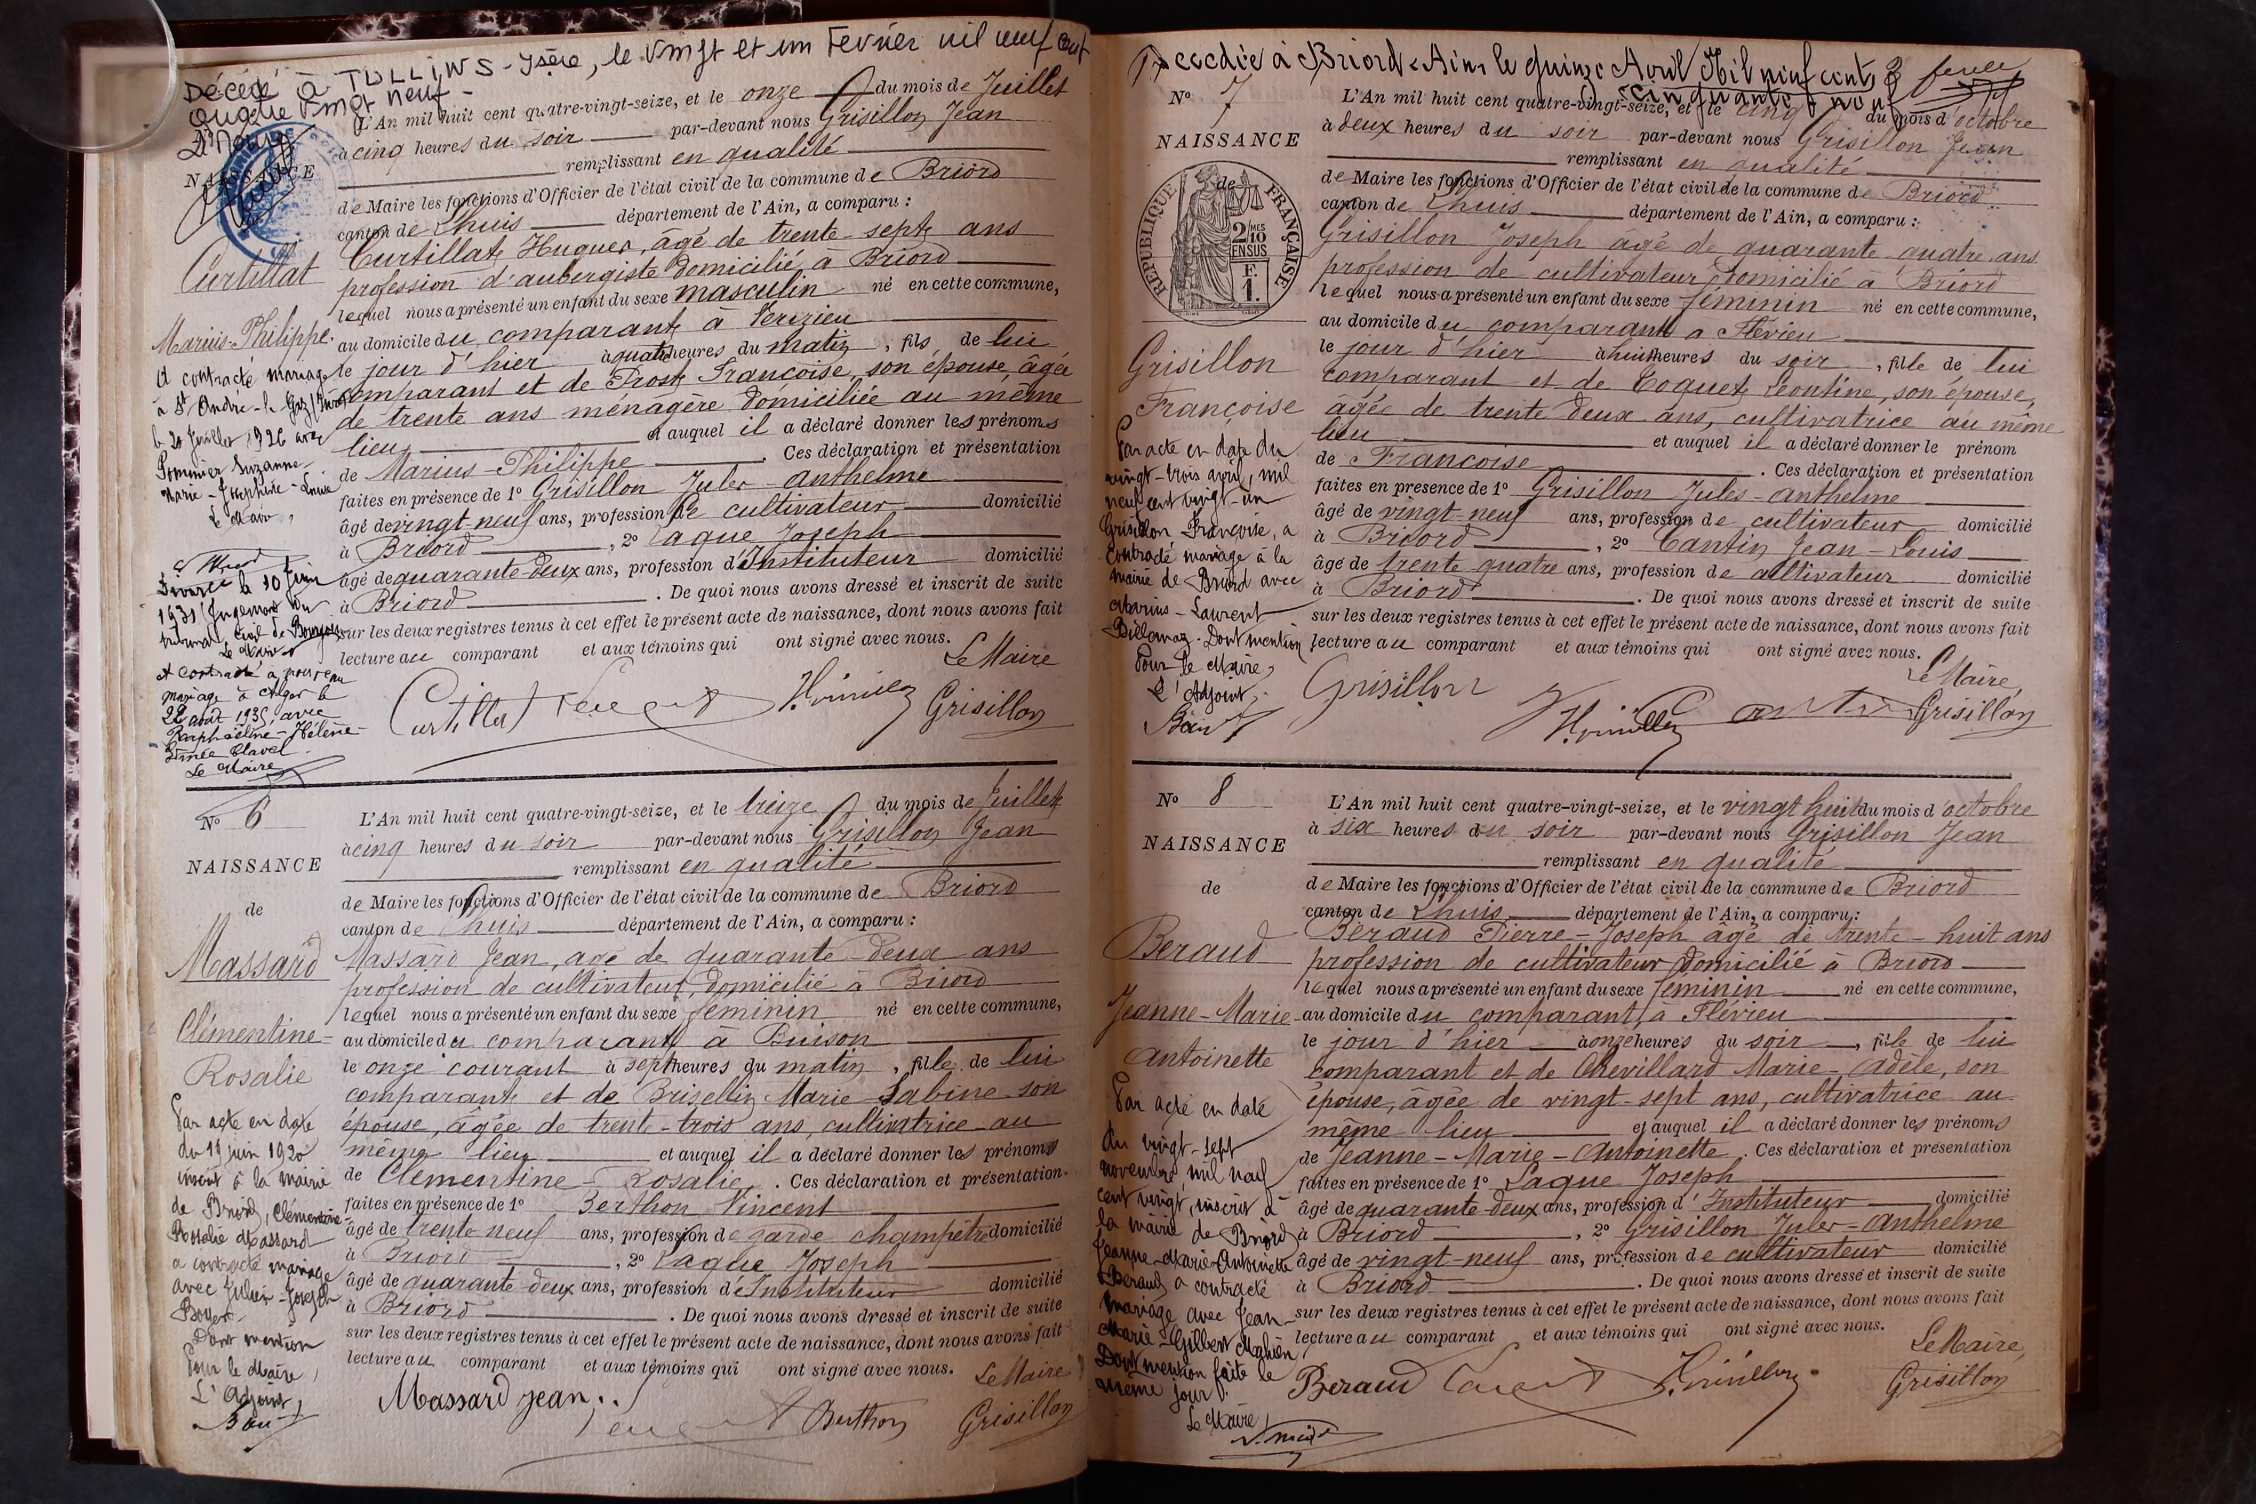 Décédé à TULLINS - Isère, le vingt et un Février mil neuf cent
quatre vingt neuf -
NAISSANCE
Curtillat
Marius-Philippe.
A contracté mariage
à St André-le-Gaz (Isère)
le 20 Juillet 1926 avec
Pommier Suzanne
Marie-Joséphine-Louise
Le Maire,
Divorcé le 10 Juin
1931 (Jugement du
tribunal civil de Bourgoin
Le Maire
A contracté à nouveau
mariage à Alger le
22 août 1935 avec
Raphaëlne-Hélène-
Aimée Clavel.
Le Maire
L'An mil huit cent quatre-vingt-seize, et le onze du mois de Juillet
à cinq heures du soir par-devant nous Grisillon Jean
remplissant en qualité
de Maire les fonctions d'Officier de l'état civil de la commune de Briord
canton de Lhuis département de l'Ain, a comparu :
Curtillat Hugues, âgé de trente-sept ans
profession d'aubergiste domicilié à Briord
lequel nous a présenté un enfant du sexe masculin né en cette commune,
au domicile du comparant à Vérizieu
le jour d'hier à quatre heures du matin, fils de lui
comparant et de Prost Françoise, son épouse, âgée
de trente ans ménagère domiciliée au même
lieu et auquel il a déclaré donner les prénoms
de Marius-Philippe. Ces déclaration et présentation
faites en présence de 1° Grisillon Jules-Anthelme
âgé de vingt-neuf ans, profession de cultivateur domicilié
à Briord, 2° Laque Joseph
âgé de quarante-deux ans, profession d'Instituteur domicilié
à Briord. De quoi nous avons dressé et inscrit de suite
sur les deux registres tenus à cet effet le présent acte de naissance, dont nous avons fait
lecture au comparant et aux témoins qui ont signé avec nous.
Le Maire
Curtillat Grisillon
N° 6
NAISSANCE
de
Massard
Clémentine-
Rosalie
Par acte en date
du 19 juin 1920
inscrit à la mairie
de Briord, Clémentine-
Rosalie Massard
a contracté mariage
avec Julien-Joseph
Dont mention
Pour le Maire,
L'Adjoint,
L'An mil huit cent quatre-vingt-seize, et le treize du mois de Juillet
à cinq heures du soir par-devant nous Grisillon Jean
remplissant en qualité
de Maire les fonctions d'Officier de l'état civil de la commune de Briord
canton de Lhuis département de l'Ain, a comparu :
Massard Jean, âgé de quarante-deux ans
profession de cultivateur, domicilié à Briord
lequel nous a présenté un enfant du sexe féminin né en cette commune,
au domicile du comparant à Buison
le onze courant à sept heures du matin, fille de lui
comparant et de Brisellin Marie-Sabine son
épouse, âgée de trente-trois ans, cultivatrice au
même lieu et auquel il a déclaré donner les prénoms
de Clémentine-Rosalie. Ces déclaration et présentation
faites en présence de 1° Berthon Vincent
âgé de trente-neuf ans, profession de garde champêtre domicilié
à Briord, 2° Laque Joseph
âgé de quarante-deux ans, profession d'Instituteur domicilié
à Briord. De quoi nous avons dressé et inscrit de suite
sur les deux registres tenus à cet effet le présent acte de naissance, dont nous avons fait
lecture au comparant et aux témoins qui ont signé avec nous.
Le Maire
Massard Jean. Berthon Grisillon
Décédée à Briord-Ain le quinze Avril Mil neuf cent
cinquante neuf
N° 7
NAISSANCE
de
RÉPUBLIQUE FRANÇAISE
2/10 MES
EN SUS
F.
1.
Grisillon
Françoise
Par acte en date du
vingt-trois avril, mil
neuf cent vingt-un
Grisillon Françoise, a
contracté mariage à la
mairie de Briord avec
Marius-Laurent
Billomaz. Dont mention
Pour le Maire,
L'Adjoint,
L'An mil huit cent quatre-vingt-seize, et le cinq du mois d'octobre
à deux heures du soir par-devant nous Grisillon Jean
remplissant en qualité
de Maire les fonctions d'Officier de l'état civil de la commune de Briord
canton de Lhuis département de l'Ain, a comparu :
Grisillon Joseph âgé de quarante-quatre ans
profession de cultivateur domicilié à Briord
lequel nous a présenté un enfant du sexe féminin né en cette commune,
au domicile du comparant à Flévieu
le jour d'hier à huit heures du soir, fille de lui
comparant et de Coquet Léontine, son épouse,
âgée de trente deux ans, cultivatrice au même
lieu et auquel il a déclaré donner le prénom
de Françoise. Ces déclaration et présentation
faites en présence de 1° Grisillon Jules-Anthelme
âgé de vingt-neuf ans, profession de cultivateur domicilié
à Briord, 2° Cantin Jean-Louis
âgé de trente quatre ans, profession de cultivateur domicilié
à Briord. De quoi nous avons dressé et inscrit de suite
sur les deux registres tenus à cet effet le présent acte de naissance, dont nous avons fait
lecture au comparant et aux témoins qui ont signé avec nous.
Le Maire,
Grisillon Grisillon
N° 8
NAISSANCE
de
Beraud
Jeanne-Marie-
Antoinette
Par acte en date
du vingt-sept
novembre, mil neuf
cent vingt, inscrit à
la mairie de Briord
Jeanne-Marie-Antoinette
Beraud a contracté
mariage avec Jean-
Marie-Gilbert Mathieu
Dont mention faite le
même jour.
Le Maire,
L'An mil huit cent quatre-vingt-seize, et le vingt huit du mois d'octobre
à six heures du soir par-devant nous Grisillon Jean
remplissant en qualité
de Maire les fonctions d'Officier de l'état civil de la commune de Briord
canton de Lhuis département de l'Ain, a comparu :
Béraud Pierre-Joseph âgé de trente-huit ans
profession de cultivateur domicilié à Briord
lequel nous a présenté un enfant du sexe féminin né en cette commune,
au domicile du comparant à Flévieu
le jour d'hier à onze heures du soir, fille de lui
comparant et de Chevillard Marie-Adèle, son
épouse, âgée de vingt-sept ans, cultivatrice au
même lieu et auquel il a déclaré donner les prénoms
de Jeanne-Marie-Antoinette. Ces déclaration et présentation
faites en présence de 1° Laque Joseph
âgé de quarante-deux ans, profession d'Instituteur domicilié
à Briord, 2° Grisillon Jules-Anthelme
âgé de vingt-neuf ans, profession de cultivateur domicilié
à Briord. De quoi nous avons dressé et inscrit de suite
sur les deux registres tenus à cet effet le présent acte de naissance, dont nous avons fait
lecture au comparant et aux témoins qui ont signé avec nous.
Le Maire,
Beraud Grisillon